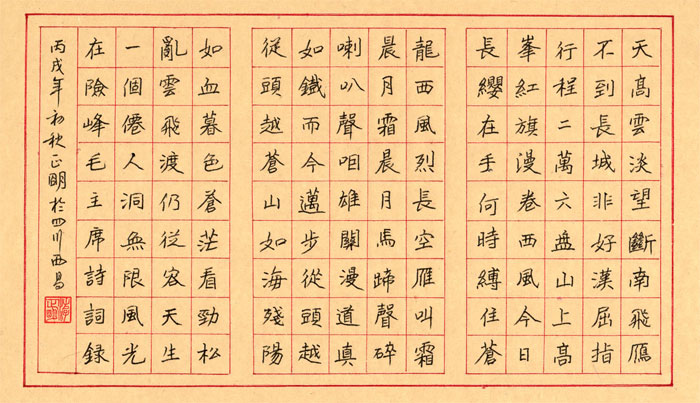 天高雲淡望斷南飛鴈
不到長城非好漢屈指
行程二萬六盤山上高
峯紅旗漫卷西風今日
長纓在手何時縛住蒼
龍西風烈長空雁叫霜
晨月霜晨月馬蹄聲碎
喇叭聲咽雄關漫道真
如鐵而今邁步從頭越
從頭越蒼山如海殘陽
如血暮色蒼茫看勁松
亂雲飛渡仍從容天生
一個僊人洞無限風光
在險峰毛主席詩詞録
丙戌年初秋正明於四川西昌